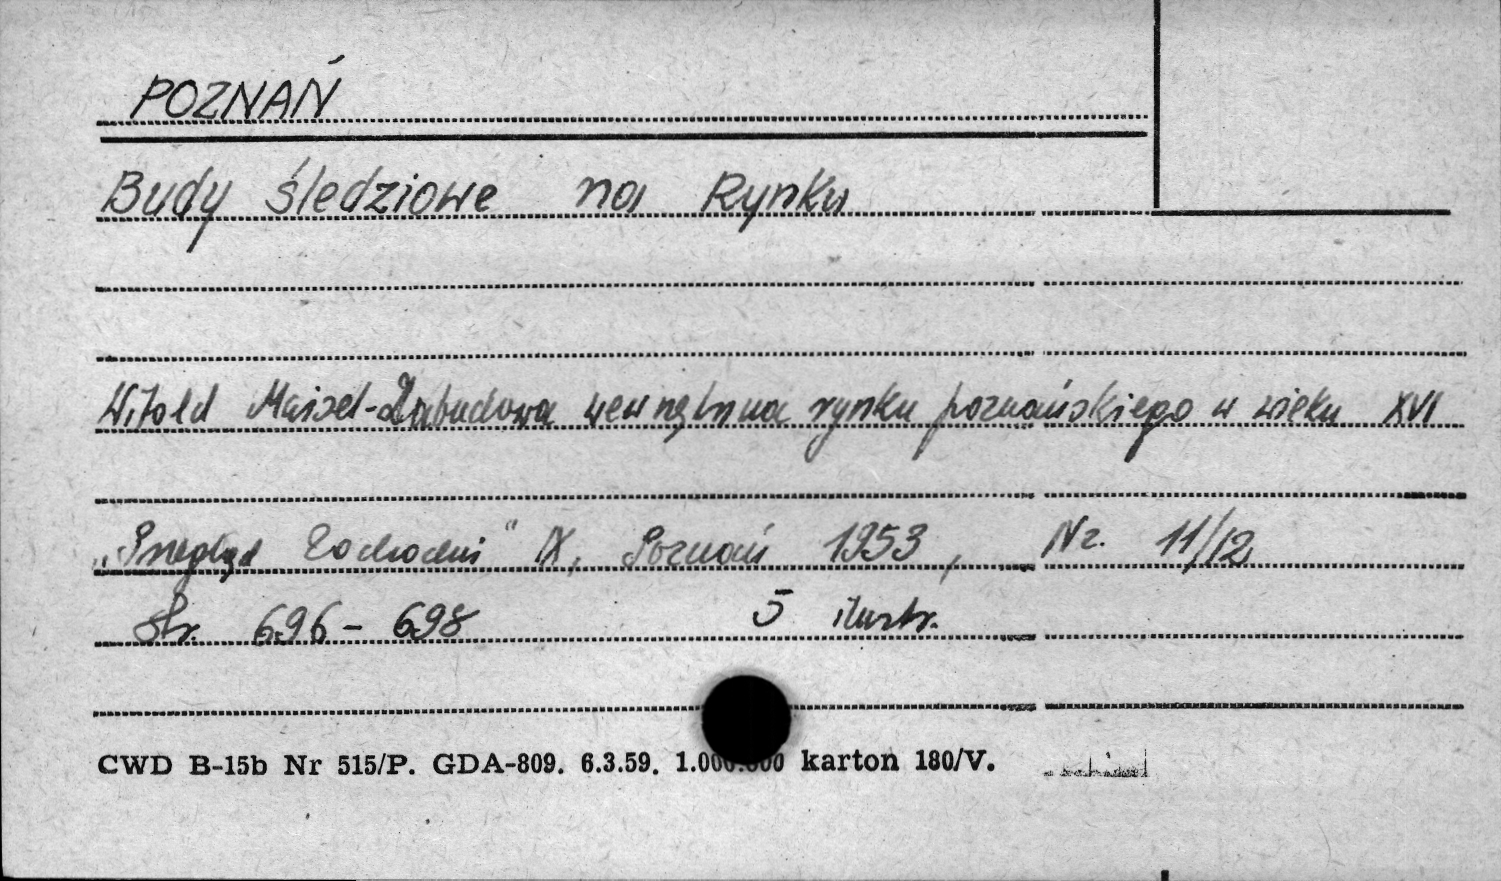 POZNAŃ
Budy śledziowe na Rynku
Witold Maisel - Zabudowa wewnętrzna rynku poznańskiego w wieku XVI
„Przegląd Zachodni" IX, Poznań 1953, Nr. 11/12
str. 696 - 698 5 ilustr.
CWD B-15b Nr 515/P. GDA-809. 6.3.59. 1.000.000 karton 180/V.